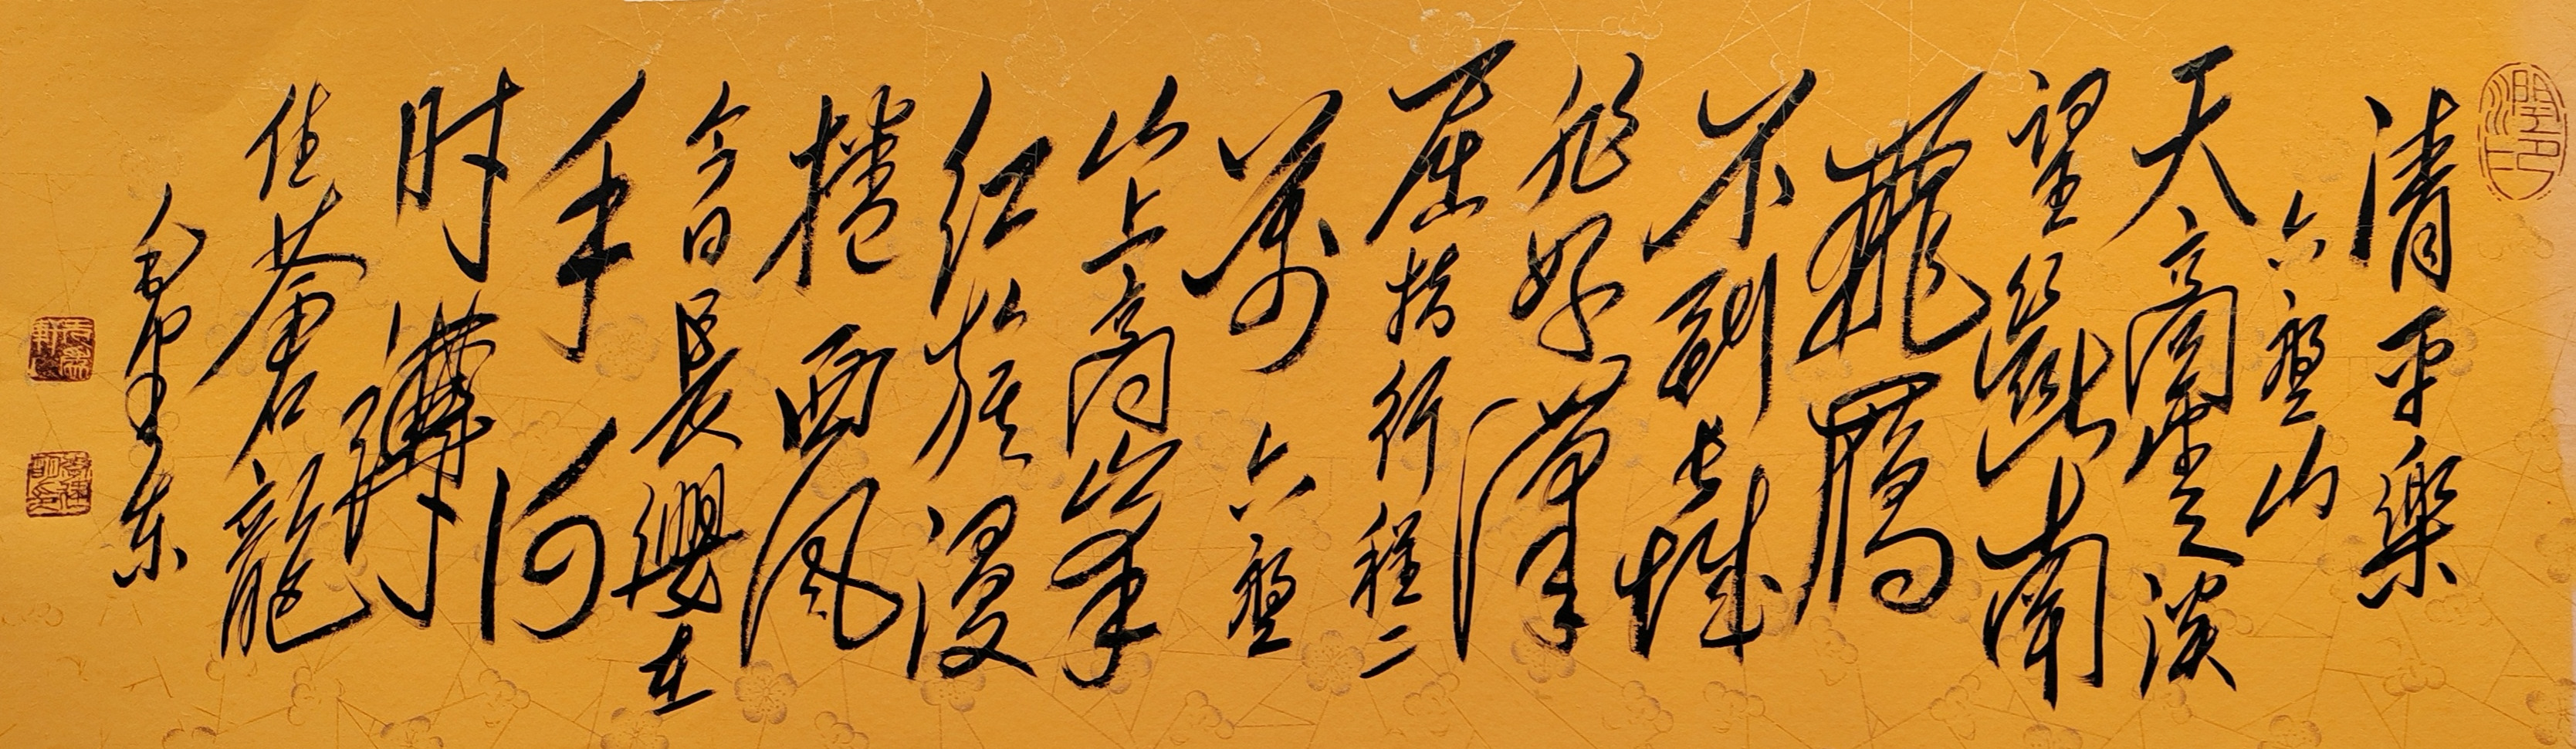 清平樂
六盤山
天高雲淡
望斷南
飛鴈
不到長城
非好漢
屈指行程二
萬六盤
山上高峯
紅旗漫
捲西風
今日長纓在
手何
时縛
住蒼龍
毛澤东